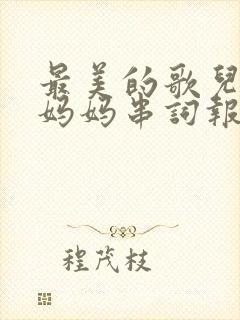 最美的歌兒
妈妈串詞報
程茂枝